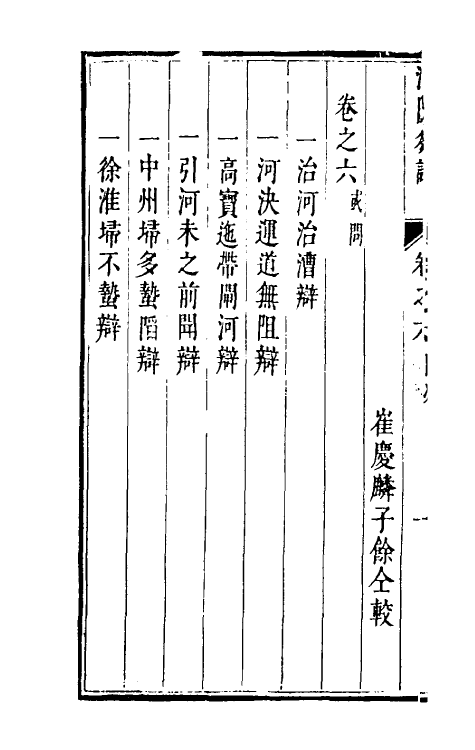 崔慶麟子餘仝較
卷之六 或問
一治河治漕辯
一河決運道無阻辯
一高寶迤帶閘河辯
一引河未之前聞辯
一中州埽多蟄陷辯
一徐淮埽不蟄辯